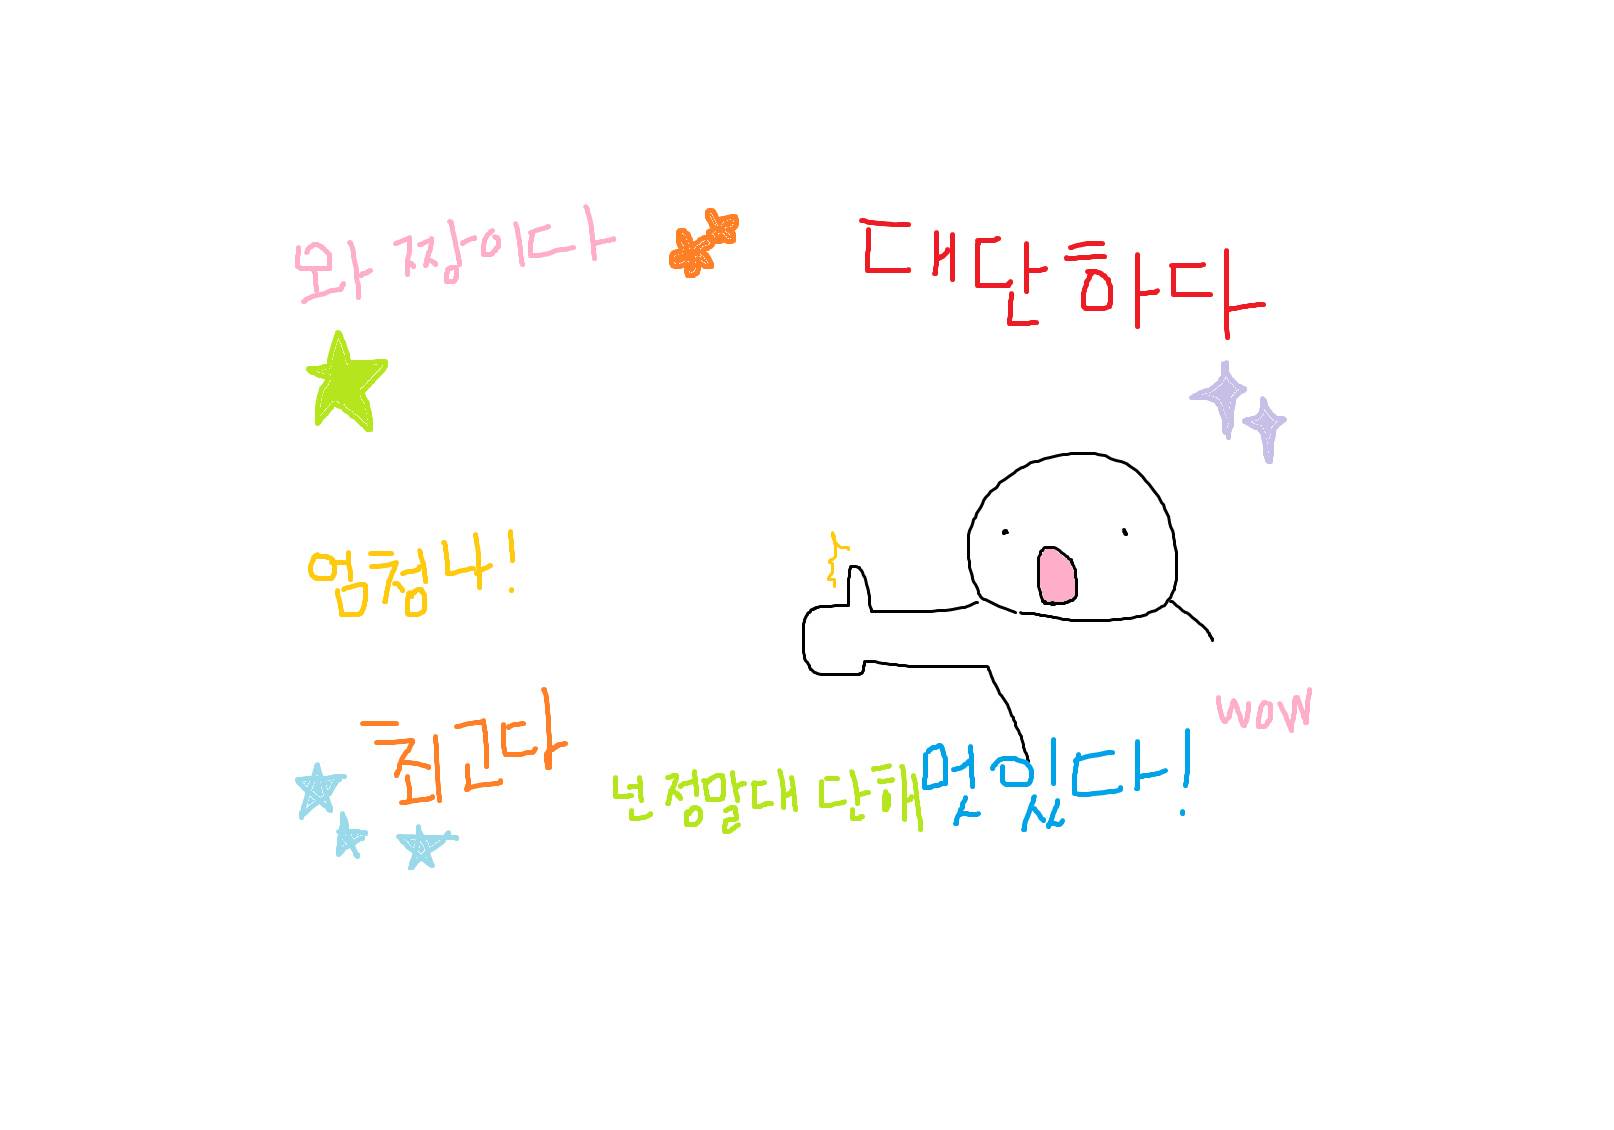 와 짱이다
대단하다
엄청나!
최고다
넌 정말 대단해
멋있다!
wow